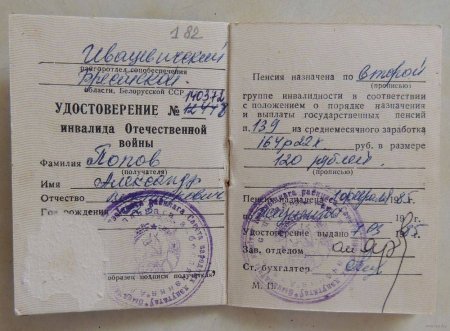 182
Ивацевичский
райгоротдел соцобеспечения
Брестской
области, Белорусской ССР
140372
УДОСТОВЕРЕНИЕ №
инвалида Отечественной
войны
Фамилия Попов
(получателя)
Имя Александр
Отчество
Год рождения
образец подписи получателя
Пенсия назначена по Второй
(прописью)
группе инвалидности в соответствии
с положением о порядке назначения
и выплаты государственных пенсий
п. 139 из среднемесячного заработка
164р22к руб. в размере
120 рублей
(прописью)
Пенсия назначена
по
Удостоверение выдано
Зав. отделом
Ст. бухгалтер
М. П.